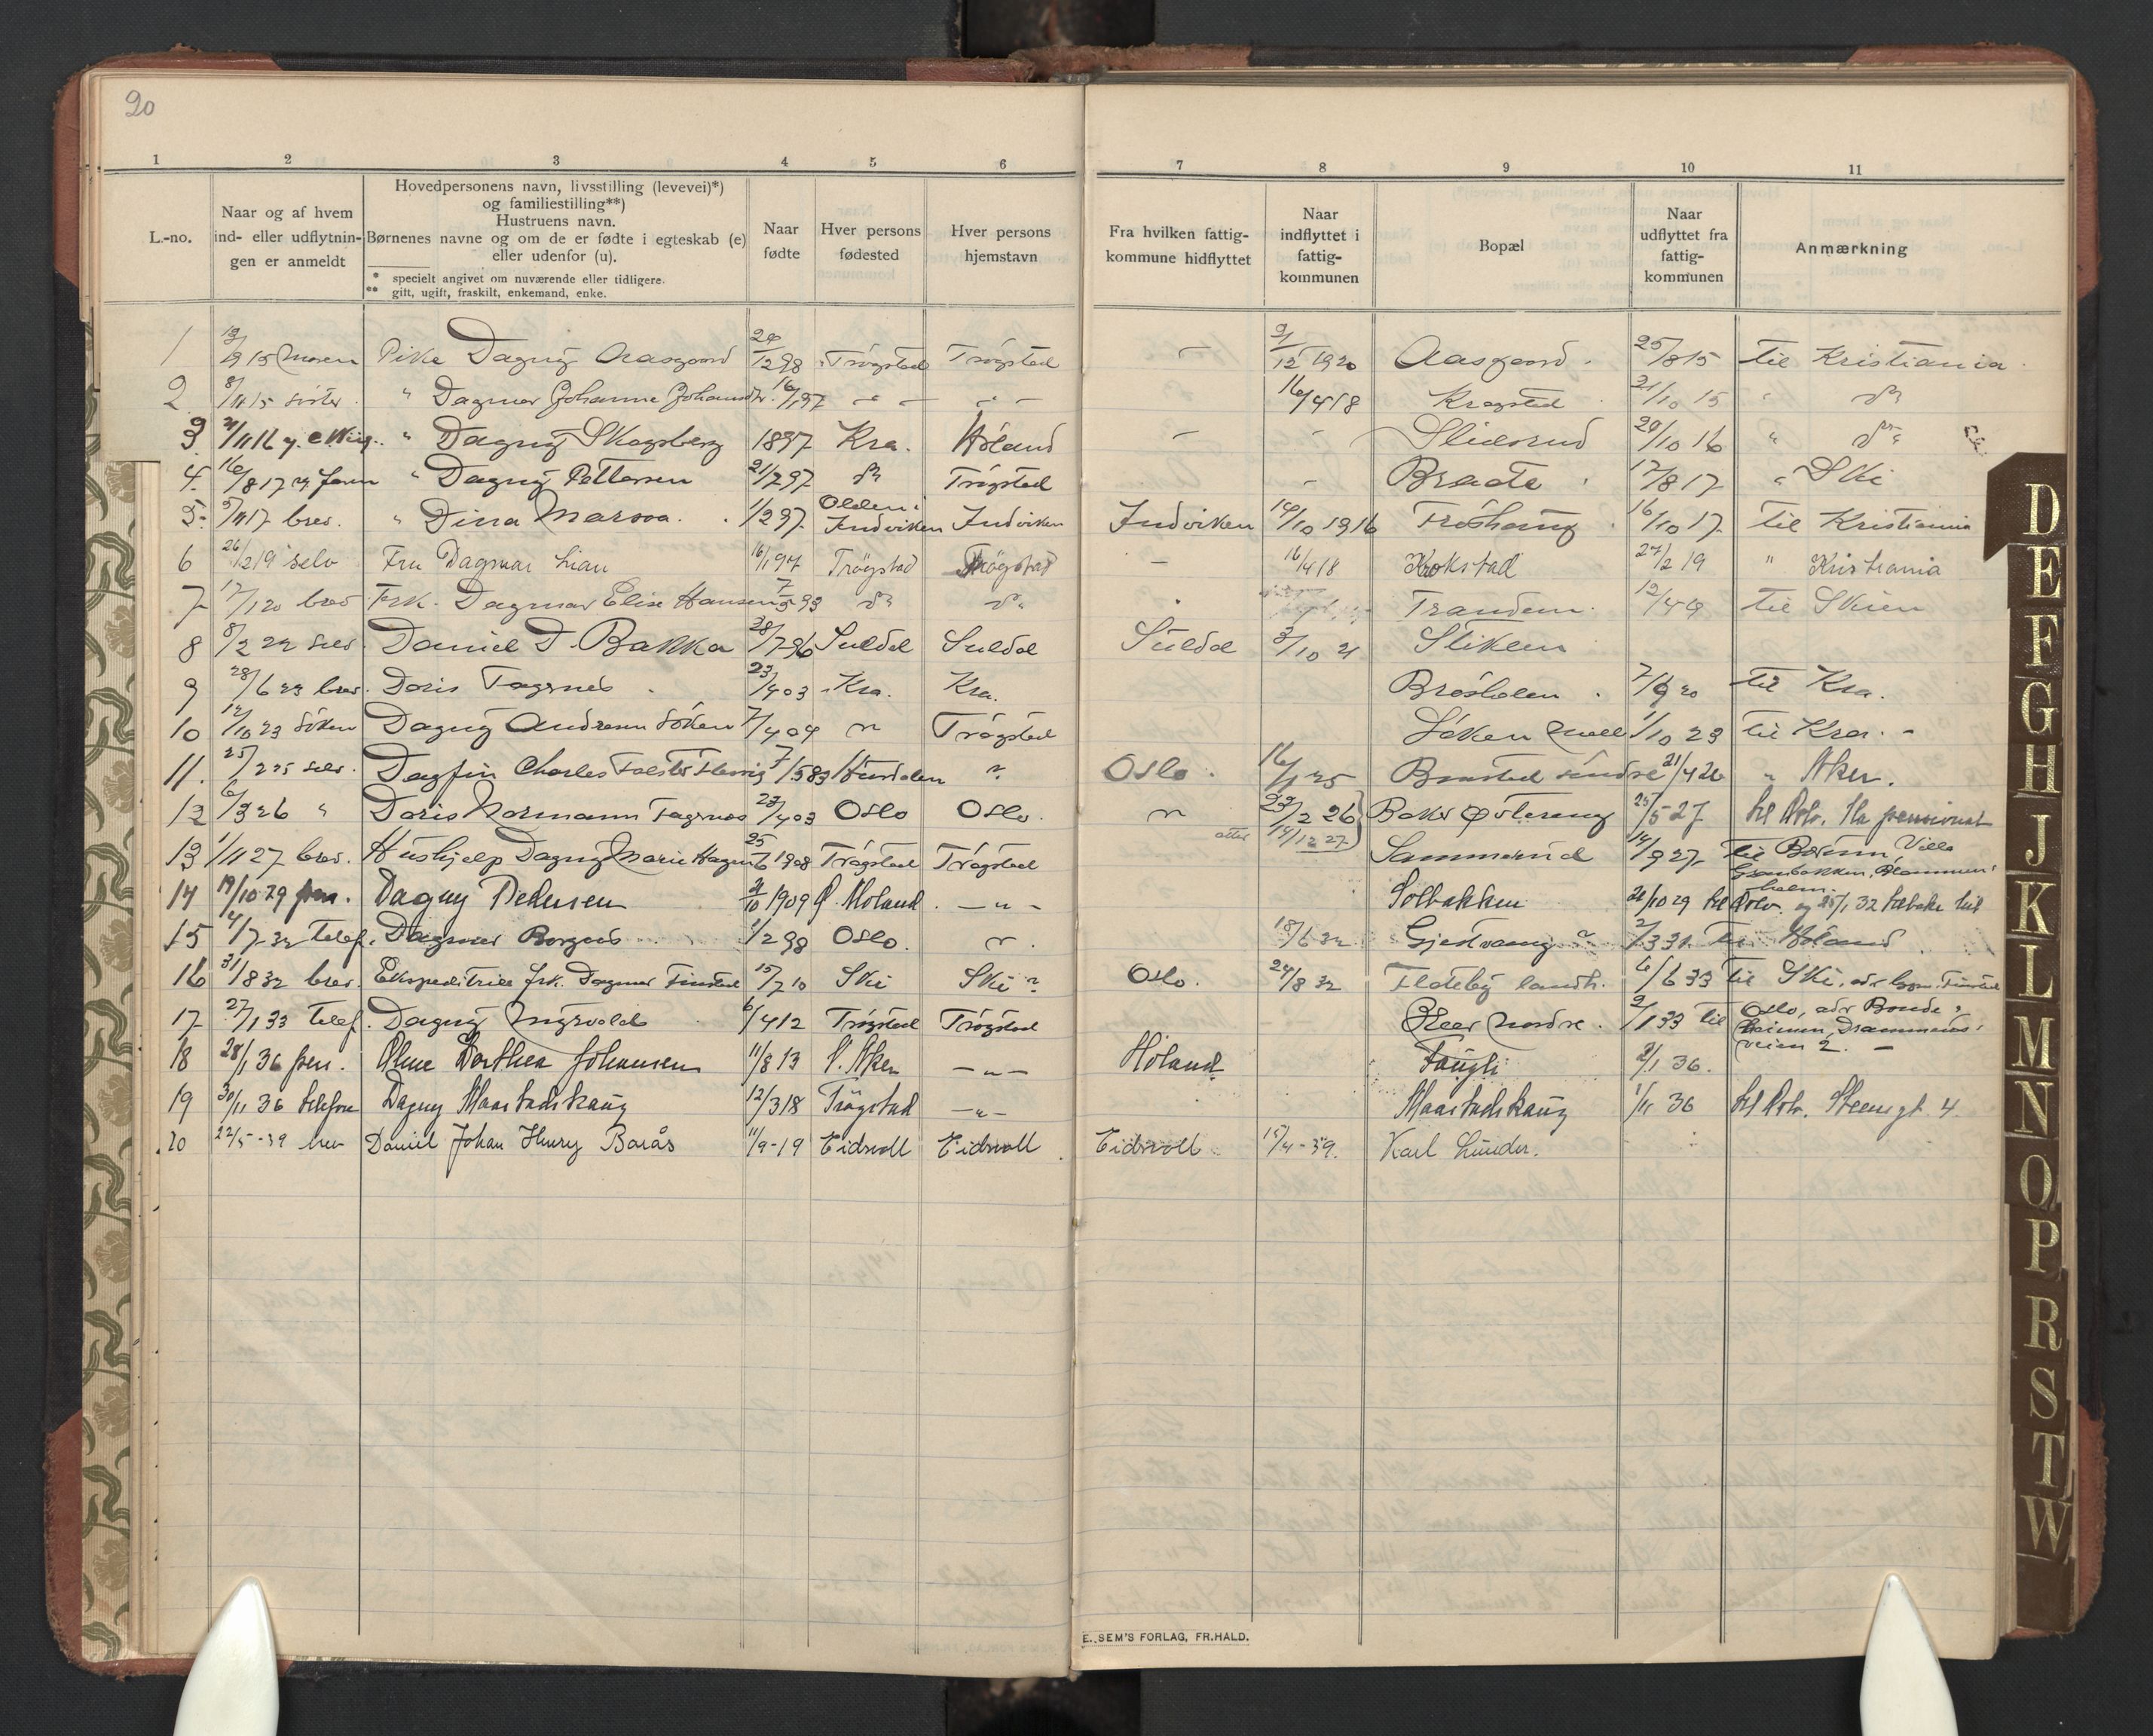 20
1 2 3 4 5 6 7 8 9 10 11
L.-no.
Naar og af hvem
ind- eller udflytnin-
gen er anmeldt
Hovedpersonens navn, livsstilling (levevei)*)
og familiestilling**)
Hustruens navn.
Børnenes navne og om de er fødte i egteskab (e)
eller udenfor (u).
* specielt angivet om nuværende eller tidligere.
** gift, ugift, fraskilt, enkemand, enke.
Naar
fødte
Hver persons
fødested
Hver persons
hjemstavn
Fra hvilken fattig-
kommune hidflyttet
Naar
indflyttet i
fattig-
kommunen
Bopæl
Naar
udflyttet fra
fattig-
kommunen
Anmærkning
1 Pike Dagny Aasgaard Trøgstad Trøgstad – Aasgaard. 25/8 15 til Kristiania.
2 8/11 15 " Dagmar Johanne 16/1 97 – " – – " – 16/4 18 Krogstad 21/10 15 " do
3. " Dagny Skogsberg 1897 Kra. Høland – – 20/10 16 " do
4. 16/8 17 " Dagny Pettersen 21/2 97 do Trøgstad – Braate 17/8 17 " Ski
5. 5/11 17 brev. " Dina 1/2 97 Olden i Indviken Indviken Indviken 14/10 1916 Frøshaug 16/10 17 til Kristiania
6 26/2 19 selv Fru Dagmar Lian 16/1 97 Trøgstad Trøgstad – 16/4 18 Krokstad 27/2 19 " Kristiania
7 17/1 20 brev Frk. Dagmar Elise Hansen 7/5 93 do do Trandem 12/4 9 til Skien
8 8/2 22 selv Daniel D. Bakka 28/7 96 Suldal Suldal Suldal 3/10 21 Sliken
9 28/6 23 brev. Doris Fagernes 23/4 03 Kra. Kra. Brøsholen. 7/9 20 til Kra.
10 12/10 23 Søken Dagny Søken 7/4 04 " Trøgstad Søken 1/10 23 til Kra. -
11. 25/2 25 selv. Dagfin Charles 7/5 83 ? Oslo. 16/1 25 søndre 21/4 26 " Aker.
12 6/3 26 " Doris Normann Fagernes 23/4 03 Oslo Oslo. " 23/2 26 Baks Østereng 25/5 27 til Oslo. pensionat
atter 14/12 27
13 1/11 27 brev. Hushjelp Dagny Marie Hagen 25/6 1908 Trøgstad Trøgstad Sammerud 14/9 27 til Bærum Villa
Granbakken, Blommen-
holm.
14 19/10 29 Dagny Pedersen 2/10 1909 Ø. Høland. – " – Solbakken 21/10 29 til Oslo. og 25/1 32 tilbake hit
15 4/7 32 telef. Dagmar Borgens 1/2 98 Oslo. " . 18/6 32 Gjedvang 2/3 31 til Høland.
16 31/8 32 brev. Ekspeditrise frk. Dagmar Finstad 15/7 10 Ski Ski? Oslo. 24/8 32 Flateby landh. 6/6 33 til Ski, adr. Finstad
17 27/1 33 telef. Dagny Ingvold 6/4 12 Trøgstad Trøgstad nordre. 2/1 33 til Oslo, adr Bonde-
heimen, Drammens-
veien 2. –
18 28/1 36 pers. Dorthea Johansen 11/8 13 V. Aker – " – Høland Faugli 2/1 36.
19 30/11 36 telefon Dagny Maastadskaug 12/3 18 Trøgstad – " – Maastadskaug 1/11 36 til Oslo. Steensgt. 4
20 22/5 -39 brev Daniel Johan Henry Barås 11/9-19 Eidsvoll Eidsvoll Eidsvoll 15/4 -39. Karl Lunder.
E. SEM'S FORLAG, FR.HALD.
D
E
F
G
H
J
K
L
M
N
O
P
R
S
T
W